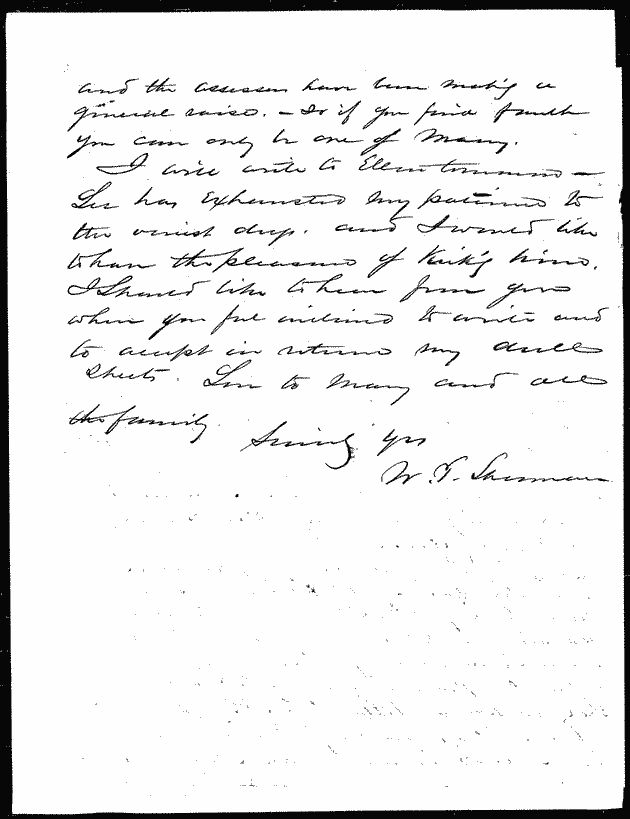 and the assessors have been making a
general raise. - So if you find fault
you can only be one of many.
I will write to Ellen tomorrow -
has exhausted my patience to
the veriest dregs. and I would like
to have the pleasure of him.
I should like to hear from you
when you feel inclined to write and
to accept in return my dull
sheets. Love to Mary and all
the family
Sincerely Yrs
W. T. Sherman